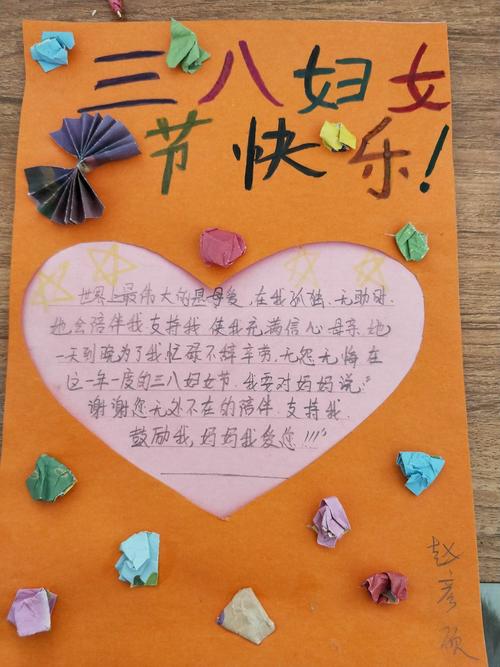 三八妇女
节快乐!
世界上最伟大的是母爱,在我孤独.无助时.
她会陪伴我支持我使我充满信心母亲她
一天到晚为了我忙碌不辞辛劳.无怨无悔在
这一年一度的三八妇女节.我要对妈妈说:"
谢谢您无处不在的陪伴.支持我.
鼓励我,妈妈我爱您!!!"
赵彦硕